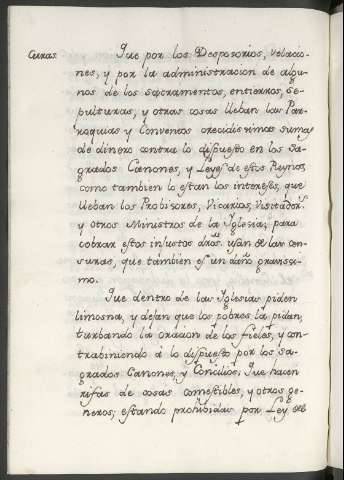 Curas.
Que por los Desposorios, velacio-
nes, y por la administracion de algu-
nos de los sacramentos, entierros, se-
pulturas, y otras cosas lleban las Par-
roquias y Conventos crecidissimas sumas
de dinero contra lo dispuesto en los Sa-
grados Canones, y Leyes de estos Reynos,
como tambien lo estan los intereses, que
lleban los Probisores, Vicarios, Visitadors.
y otros Ministros de la Yglesia; para
cobrar estos injustos dros. usan de las cen-
suras, que tambien es un daño gravissi-
mo.
Que dentro de las Yglesias piden
limosna, y dejan que los pobres la pidan,
turbando la oracion de los fieles, y con-
trabiniendo á lo dispuesto por los Sa-
grados Canones, y Concilios; Que hacen
rifas de cosas comestibles, y otros ge-
neros; estando prohibidas por Ley de